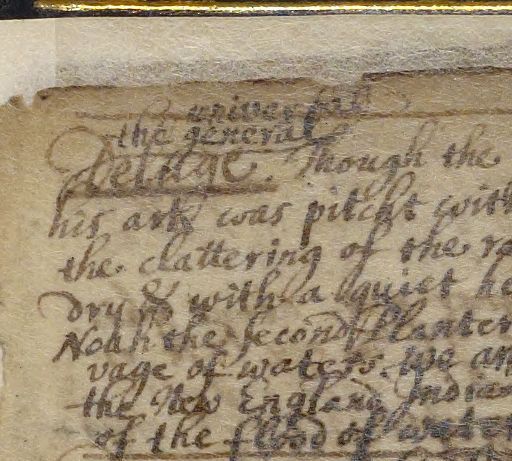 universal
the general
Deluge. Though the
his ark was pitcht with
the clattering of the
dry & with a quiet
Noah the second Planter
vage of waters. we
the New England Indian
of the flood of water